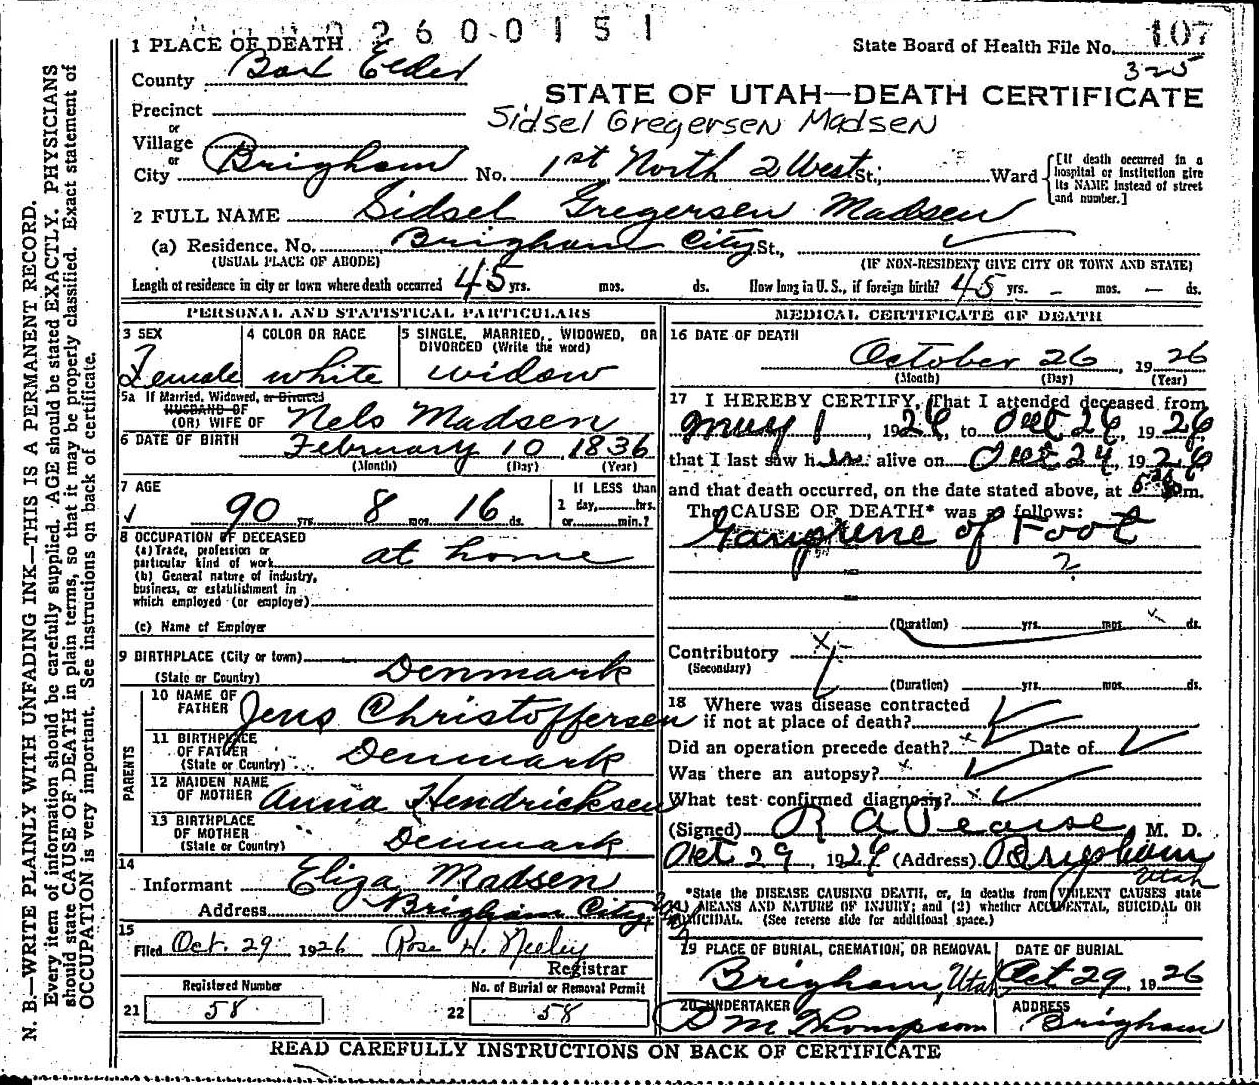 2600151
1 PLACE OF DEATH
State Board of Health File No. 107
County Box Elder
325
STATE OF UTAH—DEATH CERTIFICATE
Precinct
Sidsel Gregersen Madsen
or
Village
or
City Brigham No. 1st North 2 West St., Ward
[If death occurred in a hospital or institution give its NAME instead of street and number.]
2 FULL NAME Sidsel Gregersen Madsen
(a) Residence. No. Brigham City St.,
(USUAL PLACE OF ABODE) (IF NON-RESIDENT GIVE CITY OR TOWN AND STATE)
Length of residence in city or town where death occurred 45 yrs. mos. ds. How long in U.S., if foreign birth? 45 yrs. – mos. – ds.
PERSONAL AND STATISTICAL PARTICULARS
3 SEX 4 COLOR OR RACE 5 SINGLE, MARRIED, WIDOWED, OR DIVORCED (Write the word)
Female white widow
5a If Married, Widowed, or Divorced
HUSBAND OF
(OR) WIFE OF Nels Madsen
6 DATE OF BIRTH February 10 1836
(Month) (Day) (Year)
7 AGE 90 yrs. 8 mos. 16 ds.
If LESS than 1 day, hrs. or min.?
8 OCCUPATION OF DECEASED
(a) Trade, profession or particular kind of work at home
(b) General nature of industry, business, or establishment in which employed (or employer)
(c) Name of Employer
9 BIRTHPLACE (City or town)
(State or Country) Denmark
PARENTS
10 NAME OF FATHER Jens Christoffersen
11 BIRTHPLACE OF FATHER (State or Country) Denmark
12 MAIDEN NAME OF MOTHER Anna Hendricksen
13 BIRTHPLACE OF MOTHER (State or Country) Denmark
14
Informant Eliza Madsen
Address Brigham City
15
Filed Oct. 29 1926 Rose H. Neeley
Registrar
Registered Number No. of Burial or Removal Permit
21 58 22 58
MEDICAL CERTIFICATE OF DEATH
16 DATE OF DEATH
October 26, 1926
(Month) (Day) (Year)
17 I HEREBY CERTIFY, That I attended deceased from
May 1 1926, to Oct 26, 1926
that I last saw her alive on Oct 24 1926
and that death occurred, on the date stated above, at m.
The CAUSE OF DEATH* was as follows:
Gangrene of Foot
?
(Duration) yrs. mos. ds.
Contributory
(Secondary)
(Duration) yrs. mos. ds.
18 Where was disease contracted
if not at place of death?
Did an operation precede death? Date of
Was there an autopsy?
What test confirmed diagnosis?
(Signed) R A Pearse, M. D.
Oct 29, 1926 (Address) Brigham
Utah
*State the DISEASE CAUSING DEATH, or, in deaths from VIOLENT CAUSES state (1) MEANS AND NATURE OF INJURY; and (2) whether ACCIDENTAL, SUICIDAL OR HOMICIDAL. (See reverse side for additional space.)
19 PLACE OF BURIAL, CREMATION, OR REMOVAL DATE OF BURIAL
Brigham, Utah Oct 29, 1926
20 UNDERTAKER ADDRESS
D M Thompson Brigham
READ CAREFULLY INSTRUCTIONS ON BACK OF CERTIFICATE
N. B.—WRITE PLAINLY WITH UNFADING INK—THIS IS A PERMANENT RECORD.
Every item of information should be carefully supplied. AGE should be stated EXACTLY. PHYSICIANS
should state CAUSE OF DEATH in plain terms, so that it may be properly classified. Exact statement of
OCCUPATION is very important. See instructions on back of certificate.